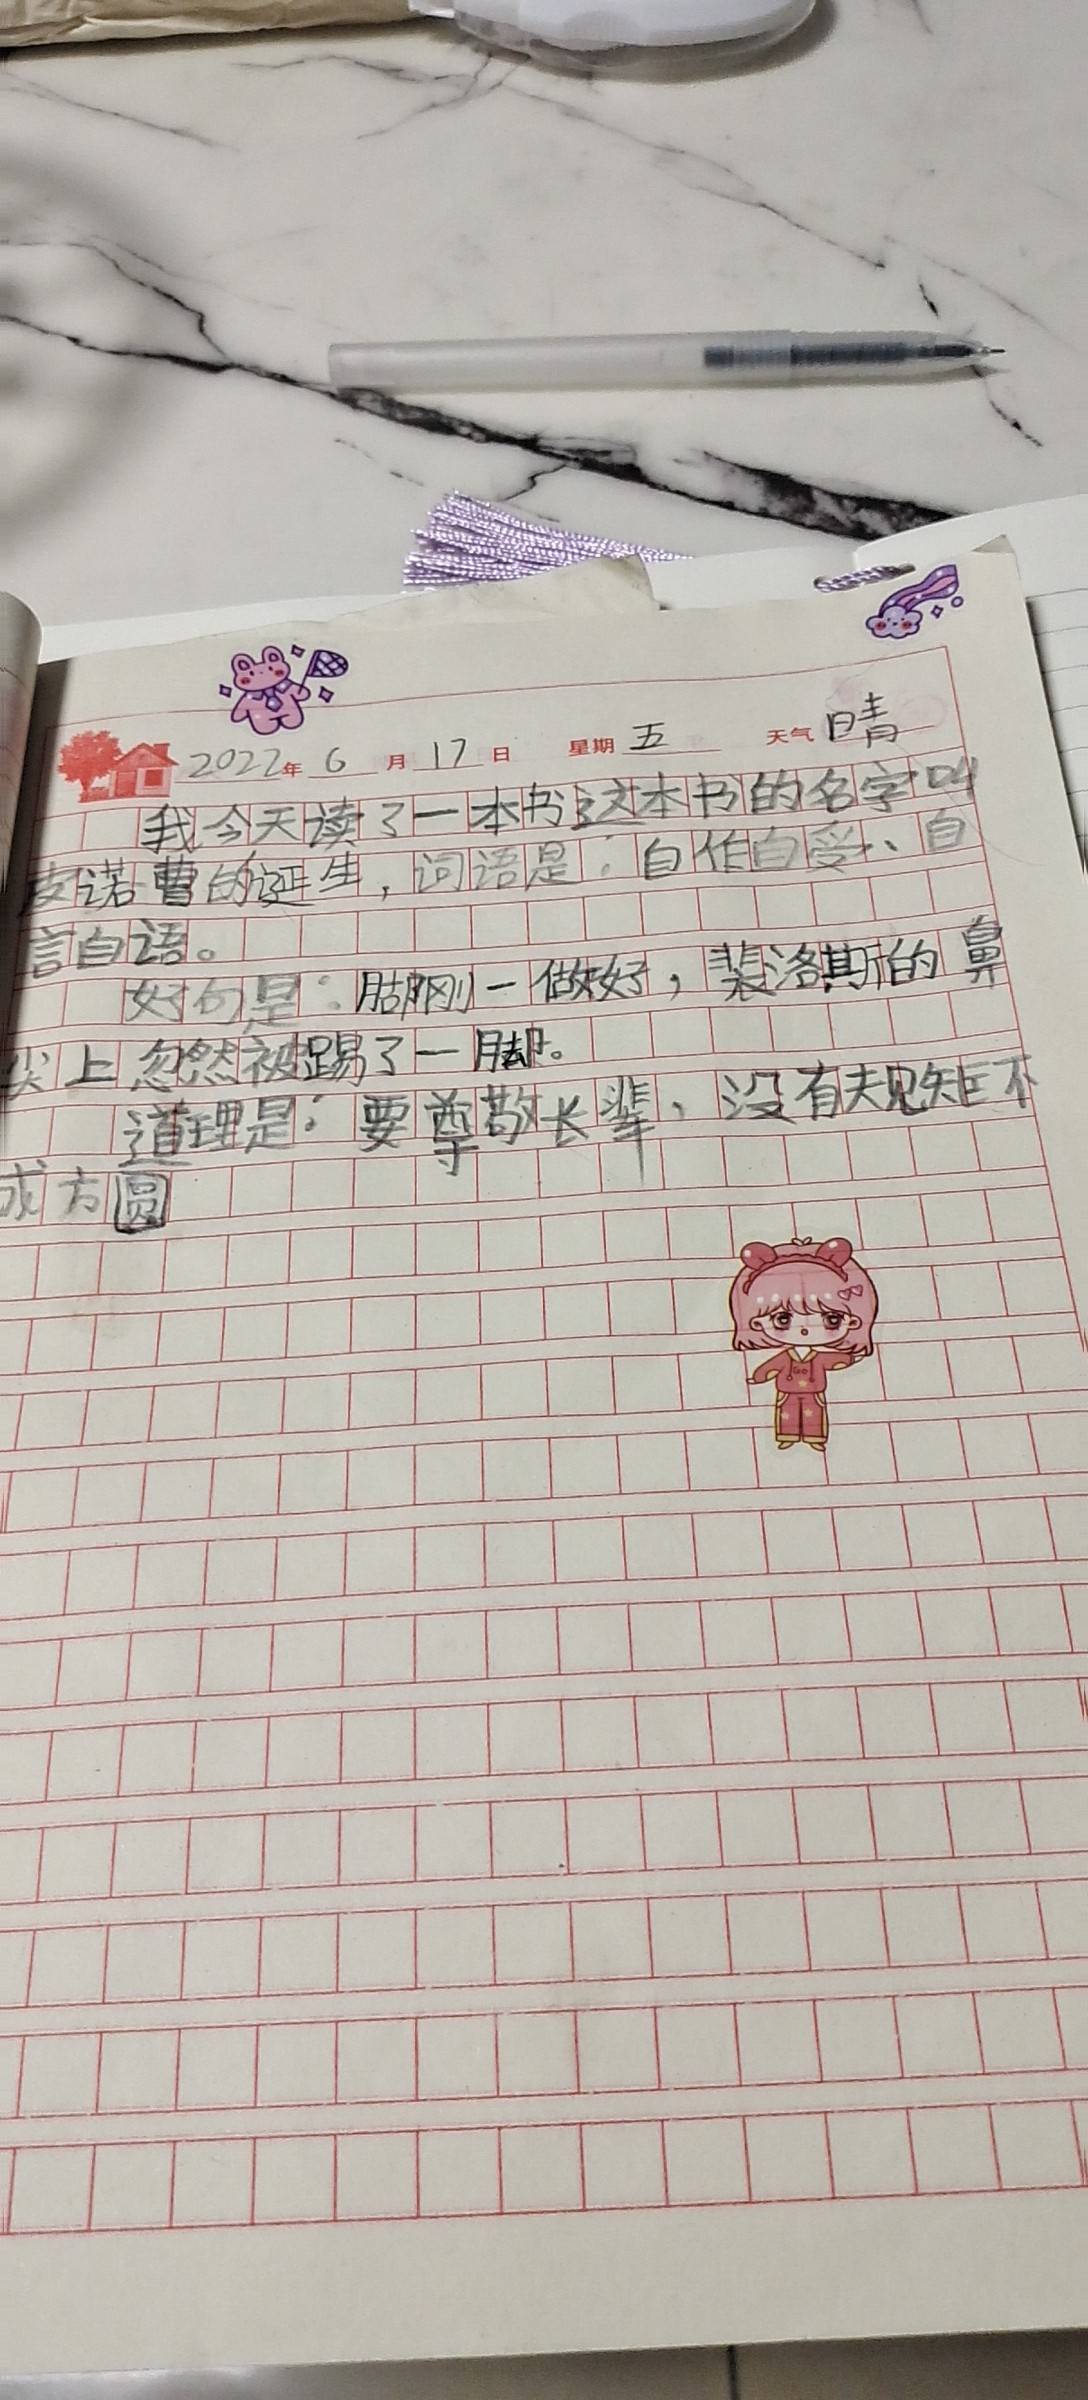 2022年 6 月 17 日 星期 五 天气 晴
我今天读了一本书这本书的名字叫
皮诺曹的诞生,词语是:自作自受、自
言自语。
好句是:脚刚一做好,裴洛斯的鼻
尖上忽然被踢了一脚。
道理是:要尊敬长辈、没有规矩不
成方圆